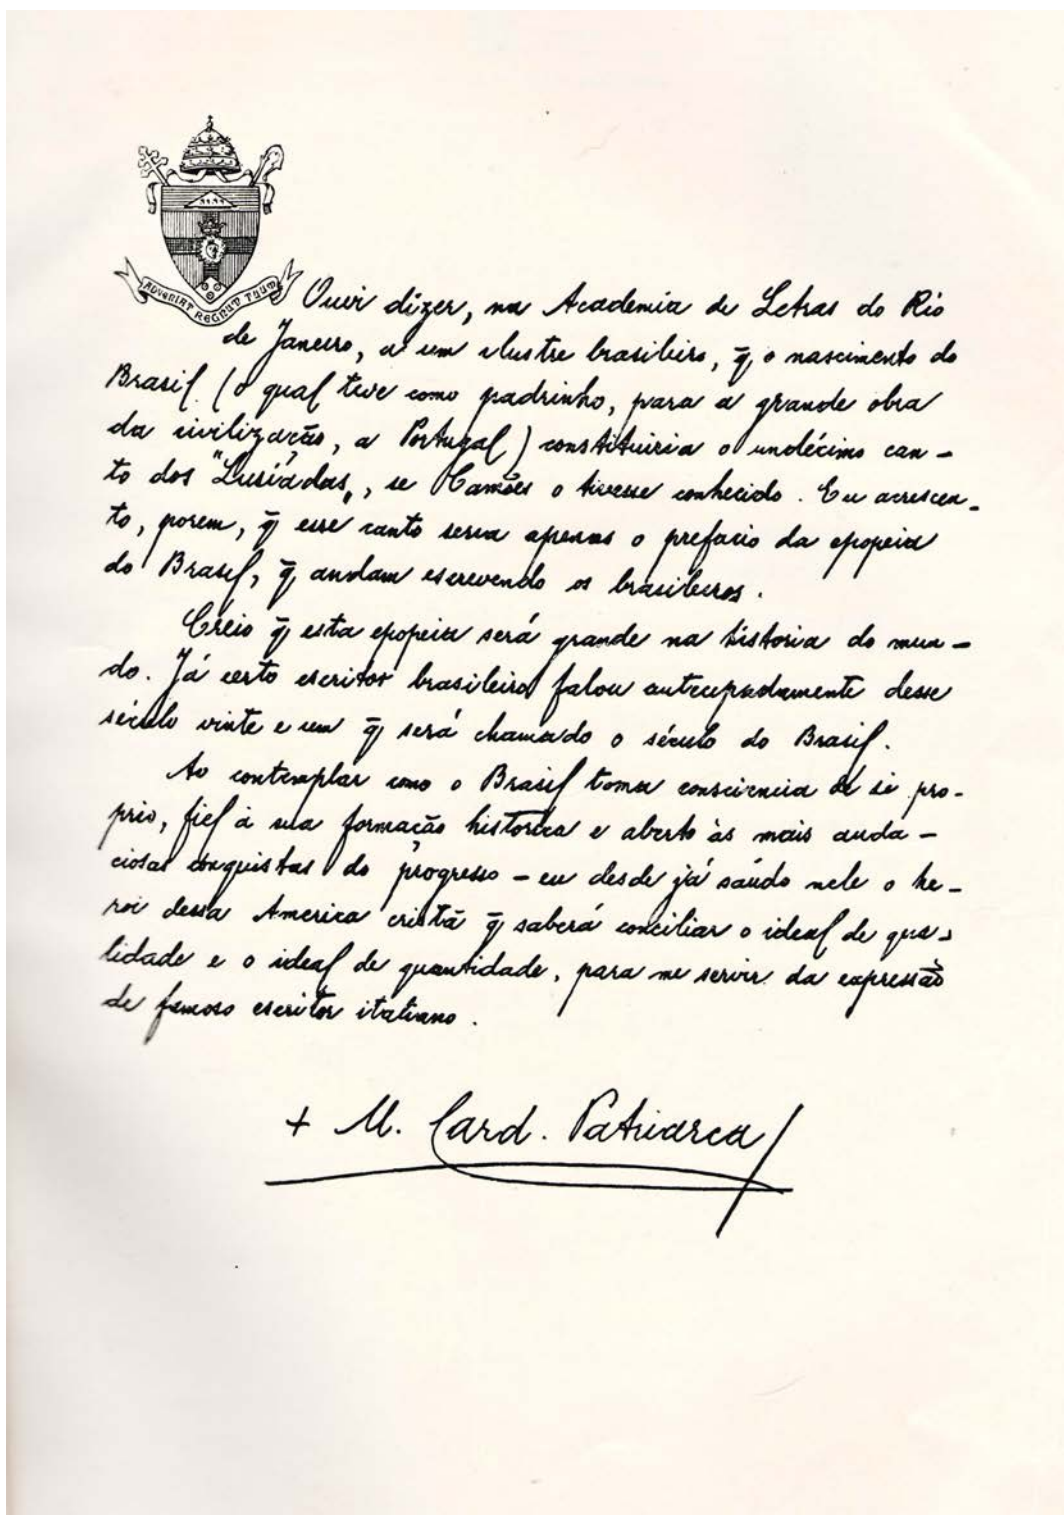 ADVENIAT REGNUM TUUM
Ouvi dizer, na Academia de Letras do Rio
de Janeiro, a um ilustre brasileiro, q̄ o nascimento do
Brasil (o qual teve como padrinho, para a grande obra
da civilização, a Portugal) constituiria o undécimo can-
to dos "Lusíadas", se Camões o tivesse conhecido. Eu acrescen-
to, porem, q̄ esse canto seria apenas o prefacio da epopeia
do Brasil, q̄ andam escrevendo os brasileiros.
Creio q̄ esta epopeia será grande na historia do mun-
do. Já certo escritor brasileiro falou antecipadamente desse
século vinte e um q̄ será chamado o século do Brasil.
Ao contemplar como o Brasil toma consciencia de si pro-
prio, fiel à sua formação historica e aberto às mais auda-
ciosas conquistas do progresso - eu desde já saúdo nele o he-
roi dessa America cristã q̄ saberá conciliar o ideal de qua-
lidade e o ideal de quantidade, para me servir da expressão
de famoso escritor italiano.
+ M. Card. Patriarca